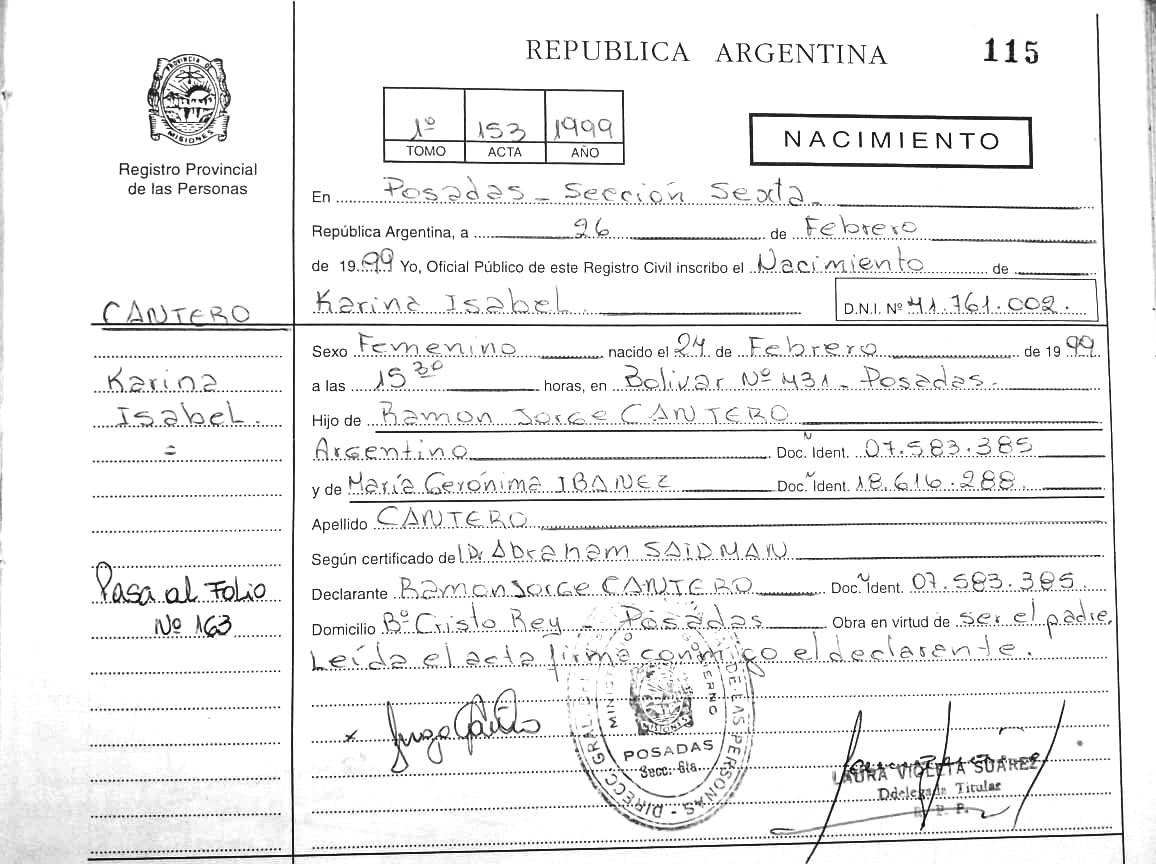 REPUBLICA ARGENTINA 115
PROVINCIA DE MISIONES
Registro Provincial
de las Personas
1º 153 1999
TOMO ACTA AÑO
NACIMIENTO
En Posadas - Sección Sexta.
República Argentina, a 26 de Febrero
de 1999 Yo, Oficial Público de este Registro Civil inscribo el Nacimiento de
Karina Isabel D.N.I. Nº 41.761.002.
CANTERO
Sexo Femenino nacido el 24 de Febrero de 1999
Karina
a las 15 30 horas, en Bolivar Nº 431 - Posadas.
Isabel.
Hijo de Ramon Jorge CANTERO
=
Argentino Doc. Ident. 07.583.385
y de María Gerónima IBAÑEZ Doc. Ident. 18.616.288.
Apellido CANTERO
Según certificado de Dr. Abraham SAIDMAN
Pasa al Folio
Nº 163
Declarante Ramon Jorge CANTERO Doc. Ident. 07.583.385
Domicilio Bº Cristo Rey - Posadas Obra en virtud de ser el padre.
Leída el acta firma conmigo el declarante.
x
DIRECC. GRAL. DE LAS PERSONAS
POSADAS
Secc. 6ta.
LAURA VIOLETA SUAREZ
Ddelegada Titular
R. P. P.